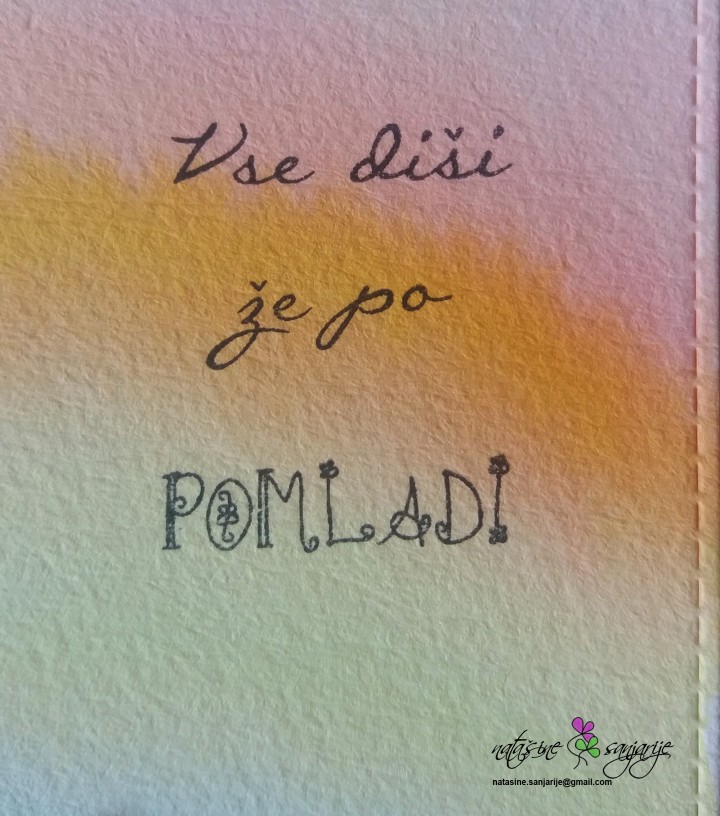 Vse diši
že po
POMLADI
natašine sanjarije
natasine.sanjarije@gmail.com